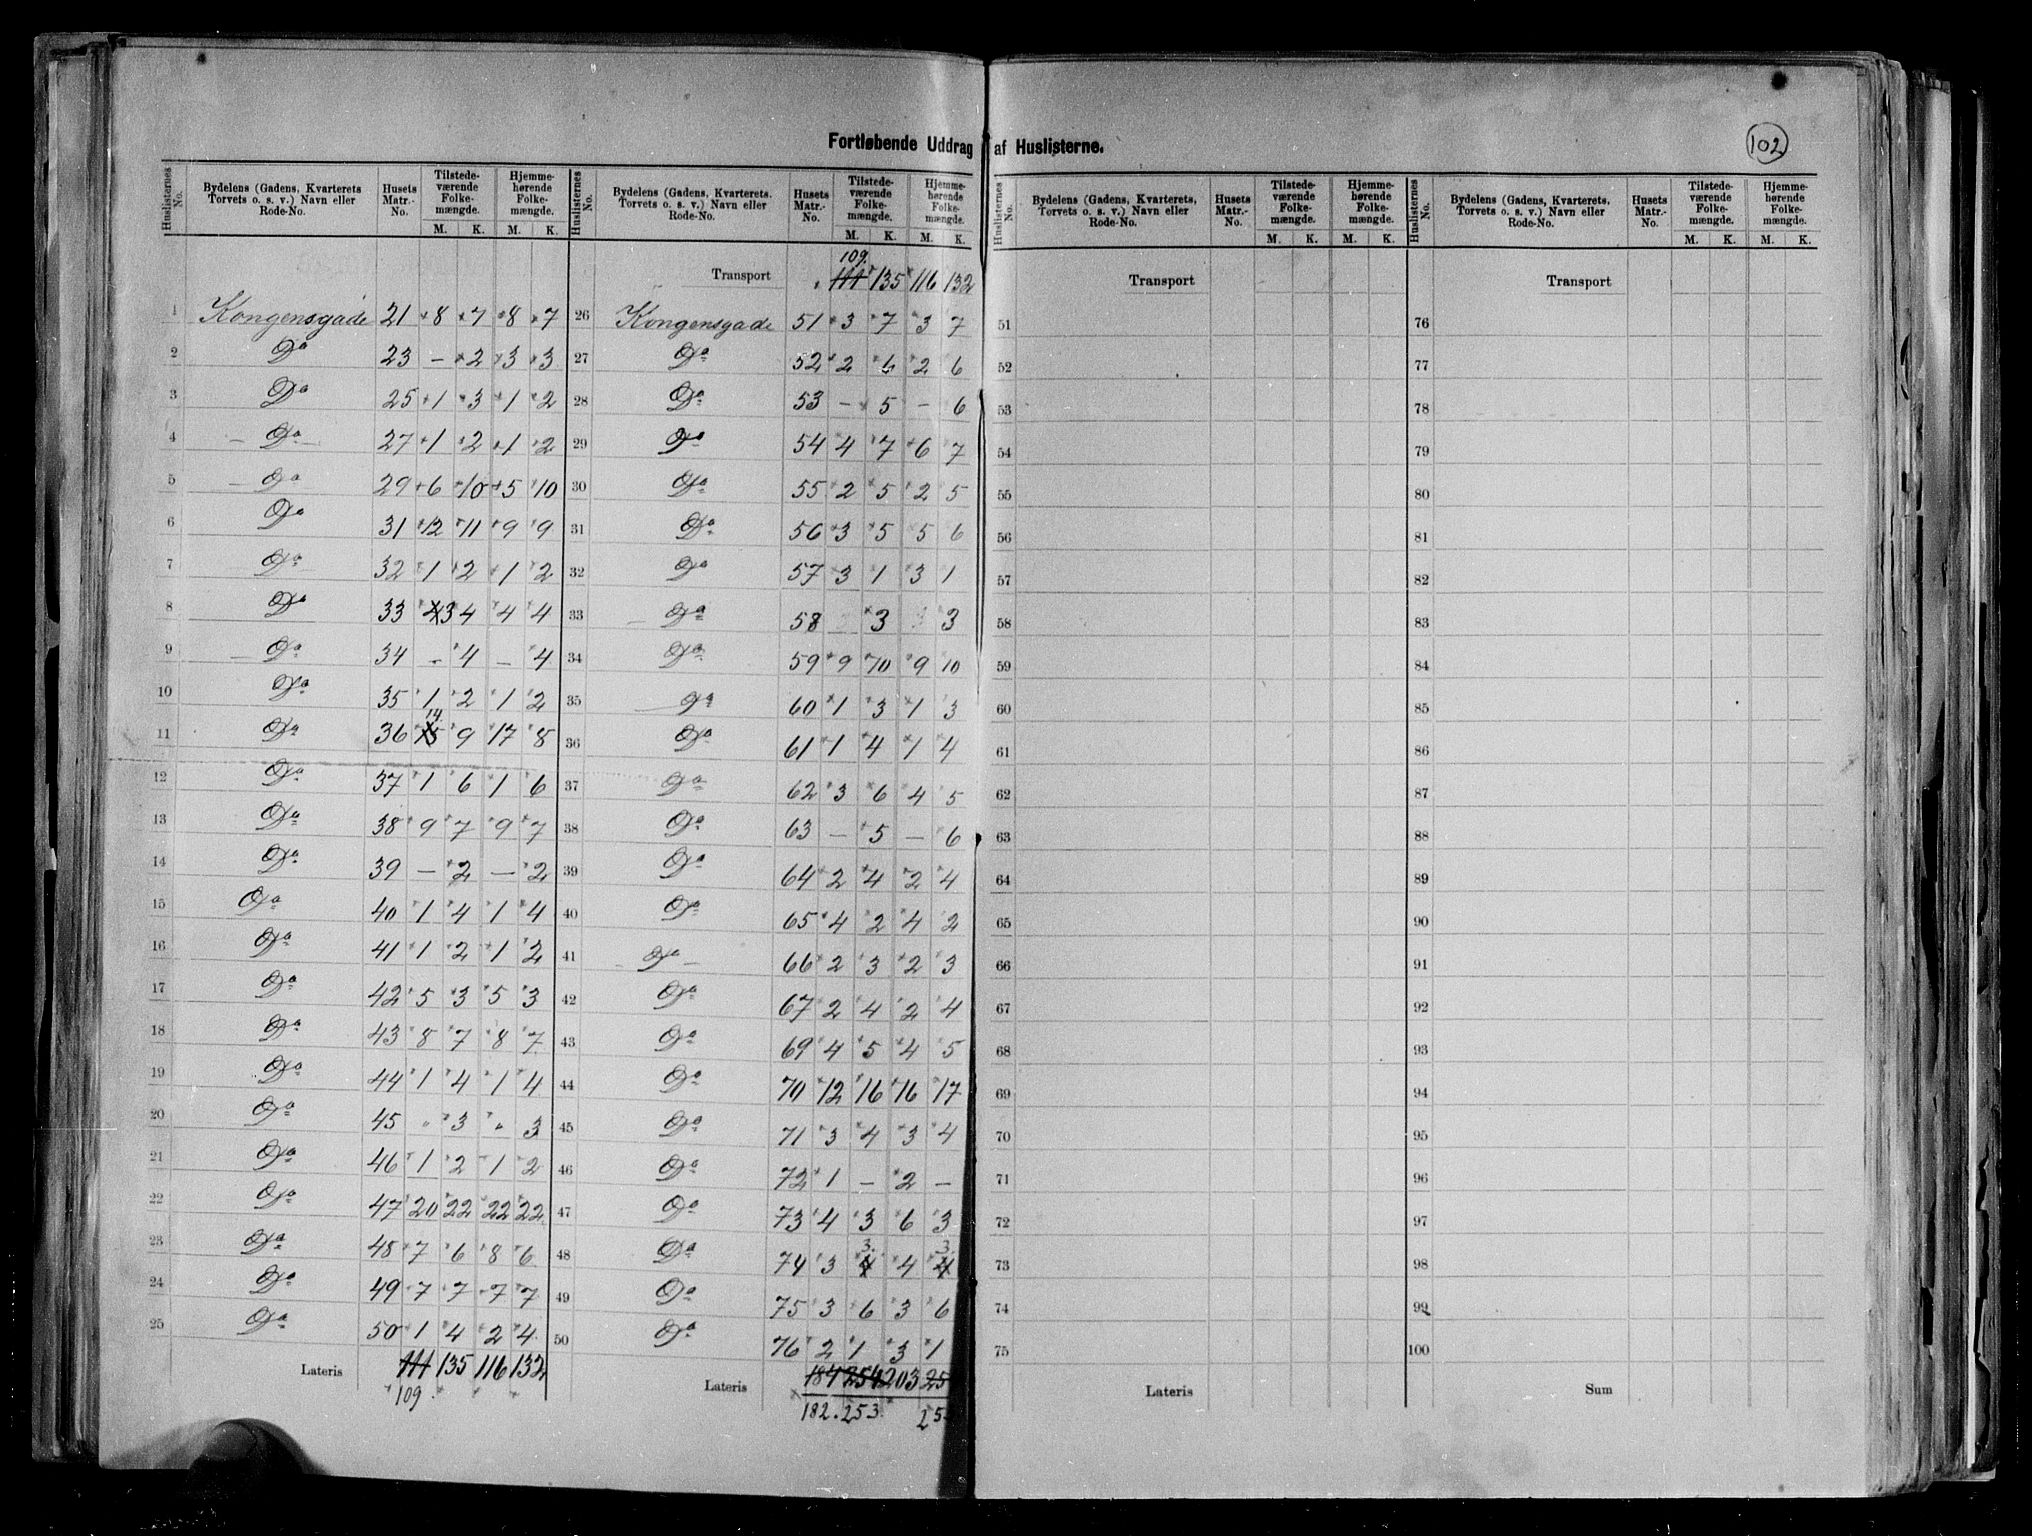 Fortløbende Uddrag af Huslisterne.
102
Huslisternes No. | Bydelens (Gadens, Kvarterets Torvets o. s. v.) Navn eller Rode-No. | Husets Matr.-No. | Tilstede-værende Folke-mængde. M. K. | Hjemme-hørende Folke-mængde. M. K.
1 Kongensgade 21 8 7 8 7
2 Do 23 – 2 3 3
3 Do 25 1 3 1 2
4 Do 27 1 2 1 2
5 Do 29 6 10 5 10
6 Do 31 12 11 9 9
7 Do 32 1 2 1 2
8 Do 33 4 3 4 4 4
9 Do 34 – 4 – 4
10 Do 35 1 2 1 2
11 Do 36 15 14. 9 17 8
12 Do 37 1 6 1 6
13 Do 38 9 7 9 7
14 Do 39 – 2 – 2
15 Do 40 1 4 1 4
16 Do 41 1 2 1 2
17 Do 42 5 3 5 3
18 Do 43 8 7 8 7
19 Do 44 1 4 1 4
20 Do 45 " 3 " 3
21 Do 46 1 2 1 2
22 Do 47 20 22 22 22
23 Do 48 7 6 8 6
24 Do 49 7 7 7 7
25 Do 50 1 4 2 4
Lateris 111 135 116 132
109
Huslisternes No. | Bydelens (Gadens, Kvarterets. Torvets o. s. v.) Navn eller Rode-No. | Husets Matr.-No. | Tilstede-værende Folke-mængde. M. K. | Hjemme-hørende Folke-mængde. M. K.
109.
Transport 111 135 116 132
26 Kongensgade 51 3 7 3 7
27 Do 52 2 6 2 6
28 Do 53 – 5 – 6
29 Do 54 4 7 6 7
30 Do 55 2 5 2 5
31 Do 56 3 5 5 6
32 Do 57 3 1 3 1
33 Do 58 3 3
34 Do 59 9 10 9 10
35 Do 60 1 3 1 3
36 Do 61 1 4 1 4
37 Do 62 3 6 4 5
38 Do 63 – 5 – 6
39 Do 64 2 4 2 4
40 Do 65 4 2 4 2
41 Do 66 2 3 2 3
42 Do 67 2 4 2 4
43 Do 69 4 5 4 5
44 Do 70 12 16 16 17
45 Do 71 3 4 3 4
46 Do 72 1 – 2 –
47 Do 73 4 3 6 3
48 Do 74 3 4 3. 4 4 3.
49 Do 75 3 6 3 6
50 Do 76 2 1 3 1
Lateris 184 254 203 25
182. 253. 25
Huslisternes No. | Bydelens (Gadens, Kvarterets, Torvets o. s. v.) Navn eller Rode-No. | Husets Matr.-No. | Tilstede-værende Folke-mængde. M. K. | Hjemme-hørende Folke-mængde. M. K.
Transport
51
52
53
54
55
56
57
58
59
60
61
62
63
64
65
66
67
68
69
70
71
72
73
74
75
Lateris
Huslisternes No. | Bydelens (Gadens, Kvarterets, Torvets o. s. v.) Navn eller Rode-No. | Husets Matr.-No. | Tilstede-værende Folke-mængde. M. K. | Hjemme-hørende Folke-mængde. M. K.
Transport
76
77
78
79
80
81
82
83
84
85
86
87
88
89
90
91
92
93
94
95
96
97
98
99
100
Sum